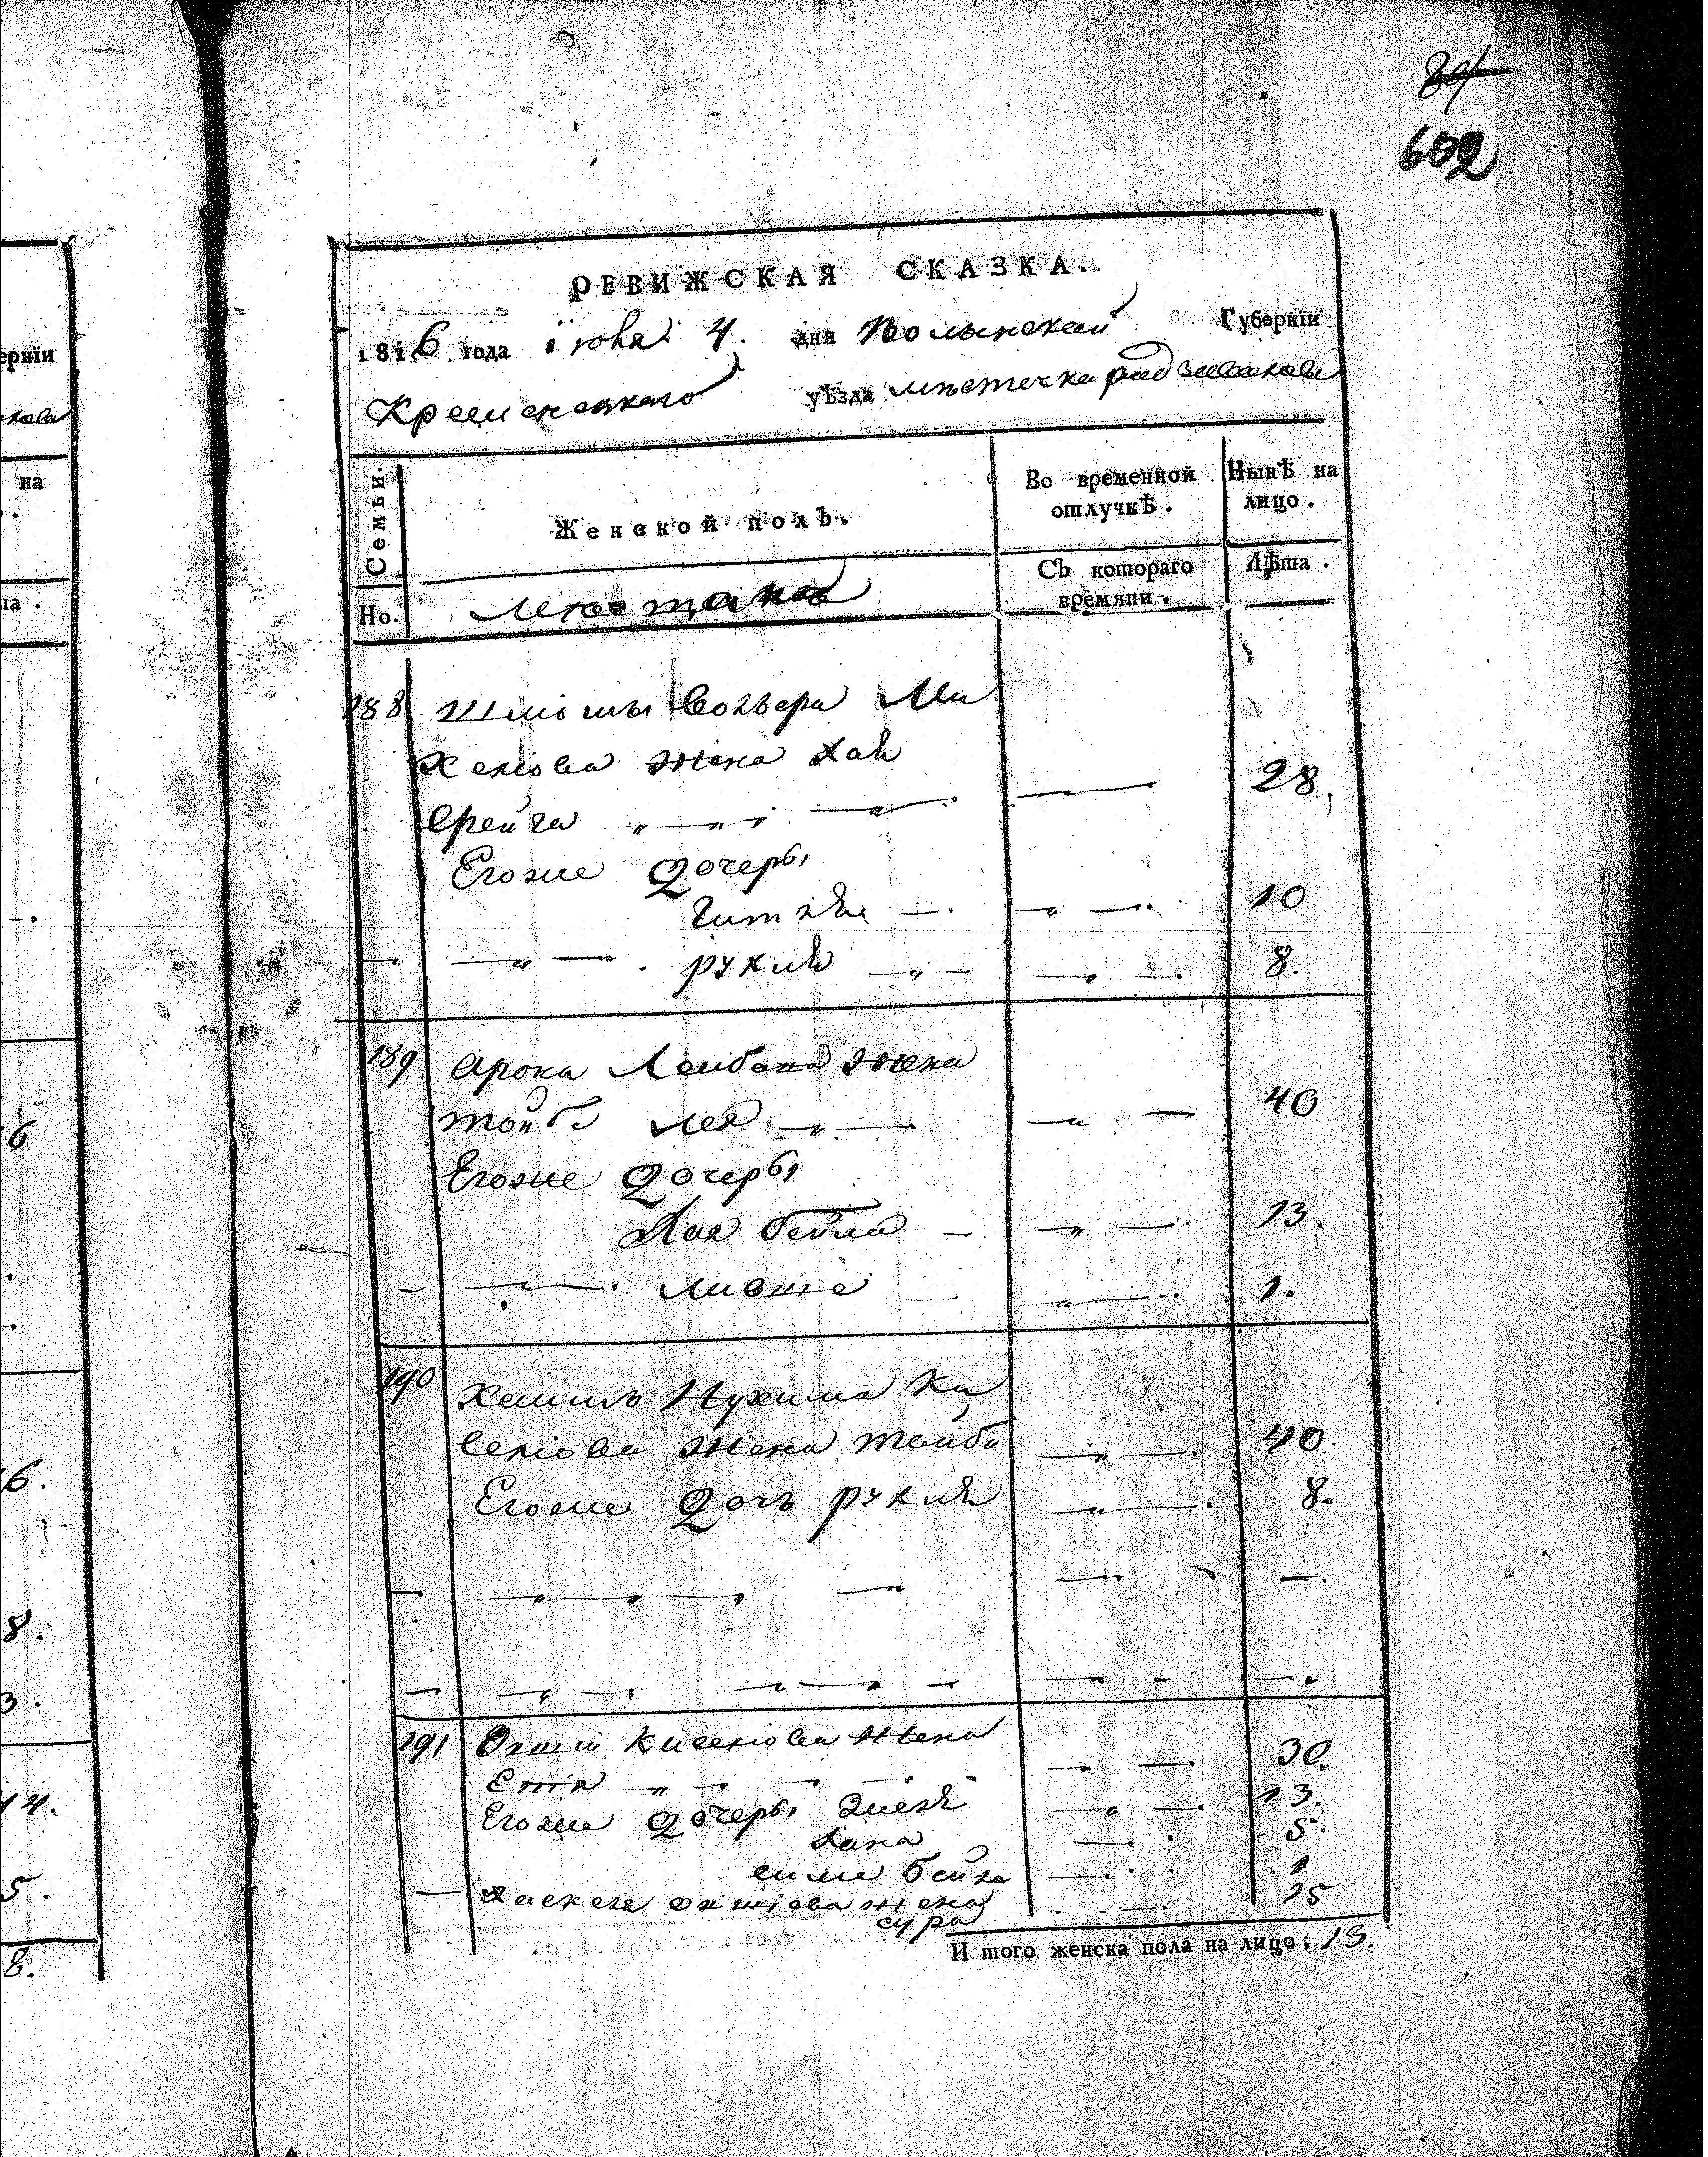 602
РЕВИЖСКАЯ СКАЗКА.
1816 года іюня 4. дня Волынской Губерніи
Кременецкаго уѣзда мѣстечка радзивилова
Семьи.
Женской полъ.
Во временной отлучкѣ.
Нынѣ на лицо.
Но.
мещанъ
Съ котораго времяни.
Лѣта.
188 Шліомы Волвера Ми
хелюва жена Хая
фрейга 28
Егоже дочеры
Гитля 10
рухля 8.
189 Арона Лейбова жена
тойба лея 40
Егоже дочеры
Хая бейла 13.
ливше 1.
190 Хаимъ Нухима Ки
селюва жена тойба 40.
Егоже дочъ рухля 8.
191 Окшіи Киселюва жена
Етя 30.
Егоже дочеры 13.
хана 5.
симе бейла 1
Хаскеля окшіова жена 25
сура
И того женска пола на лицо; 13.
ерніи
на
6
6.
8.
3.
14.
5.
8.